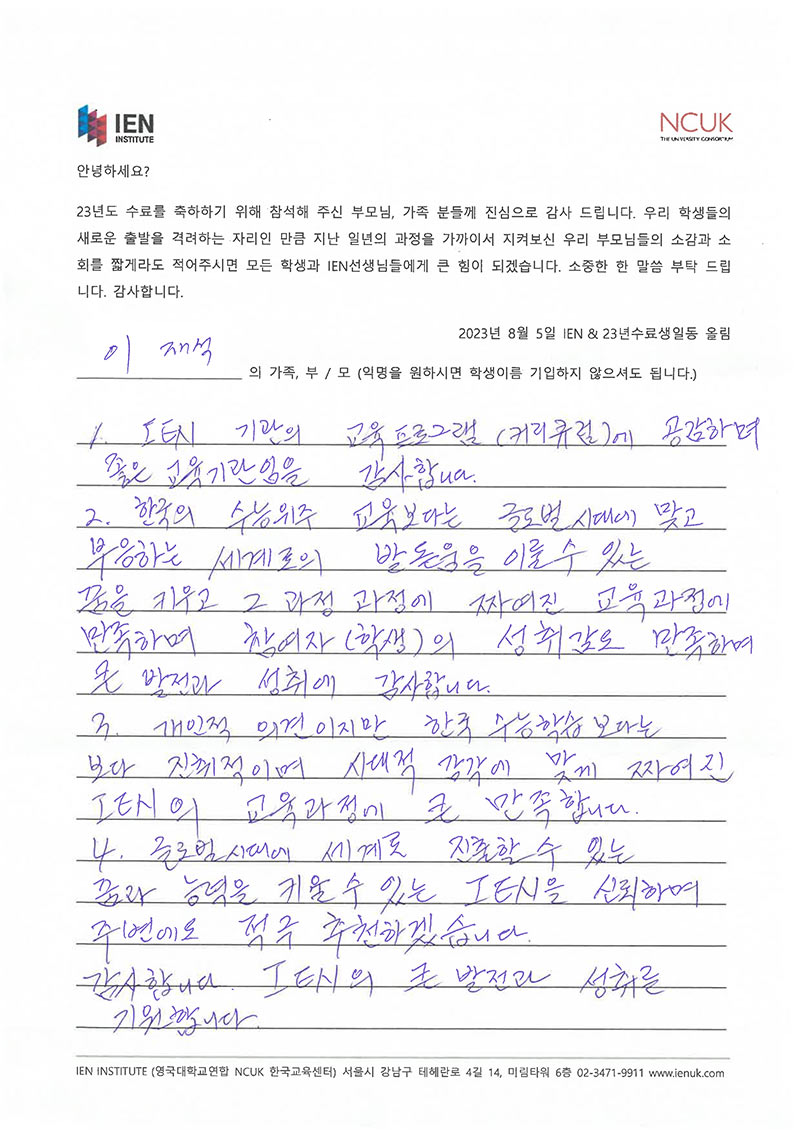 IEN
INSTITUTE
NCUK
THE UNIVERSITY CONSORTIUM
안녕하세요?
23년도 수료를 축하하기 위해 참석해 주신 부모님, 가족 분들께 진심으로 감사 드립니다. 우리 학생들의
새로운 출발을 격려하는 자리인 만큼 지난 일년의 과정을 가까이서 지켜보신 우리 부모님들의 소감과 소
회를 짧게라도 적어주시면 모든 학생과 IEN선생님들에게 큰 힘이 되겠습니다. 소중한 한 말씀 부탁 드립
니다. 감사합니다.
2023년 8월 5일 IEN & 23년수료생일동 올림
이 재석
의 가족, 부 / 모 (익명을 원하시면 학생이름 기입하지 않으셔도 됩니다.)
1. IEN 기관의 교육프로그램 (커리큐럼)에 공감하며
좋은 교육기관임을 감사합니다.
2. 한국의 수능위주 교육보다는 글로벌시대에 맞고
부응하는 세계로의 발돋움을 이룰 수 있는
꿈을 키우고 그 과정 과정에 짜여진 교육과정에
만족하며 참여자(학생)의 성취감도 만족하며
큰 발전과 성취에 감사합니다.
3. 개인적 의견이지만 한국 수능학습 보다는
보다 진취적이며 시대적 감각에 맞게 짜여진
IEN의 교육과정에 큰 만족합니다.
4. 글로벌시대에 세계로 진출할 수 있는
꿈과 능력을 키울 수 있는 IEN을 신뢰하며
주변에도 적극 추천하겠습니다.
감사합니다. IEN의 큰 발전과 성취를
기원합니다.
IEN INSTITUTE (영국대학교연합 NCUK 한국교육센터) 서울시 강남구 테헤란로 4길 14, 미림타워 6층 02-3471-9911 www.ienuk.com